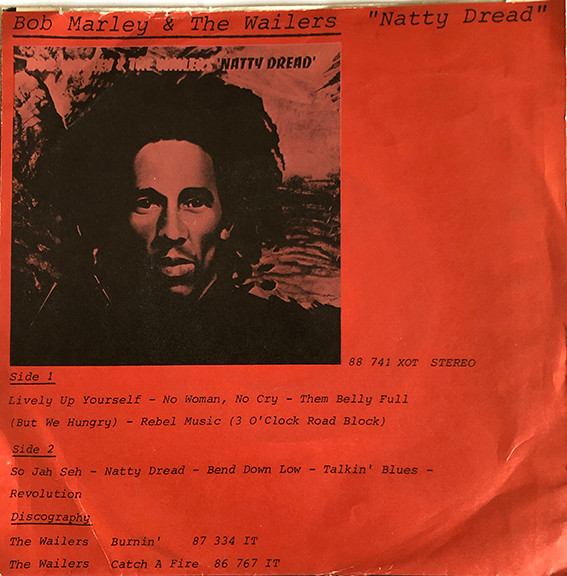 Bob Marley & The Wailers "Natty Dread"
BOB MARLEY & THE WAILERS 'NATTY DREAD'
88 741 XOT STEREO
Side 1
Lively Up Yourself - No Woman, No Cry - Them Belly Full
(But We Hungry) - Rebel Music (3 O'Clock Road Block)
Side 2
So Jah Seh - Natty Dread - Bend Down Low - Talkin' Blues -
Revolution
Discography
The Wailers Burnin' 87 334 IT
The Wailers Catch A Fire 86 767 IT